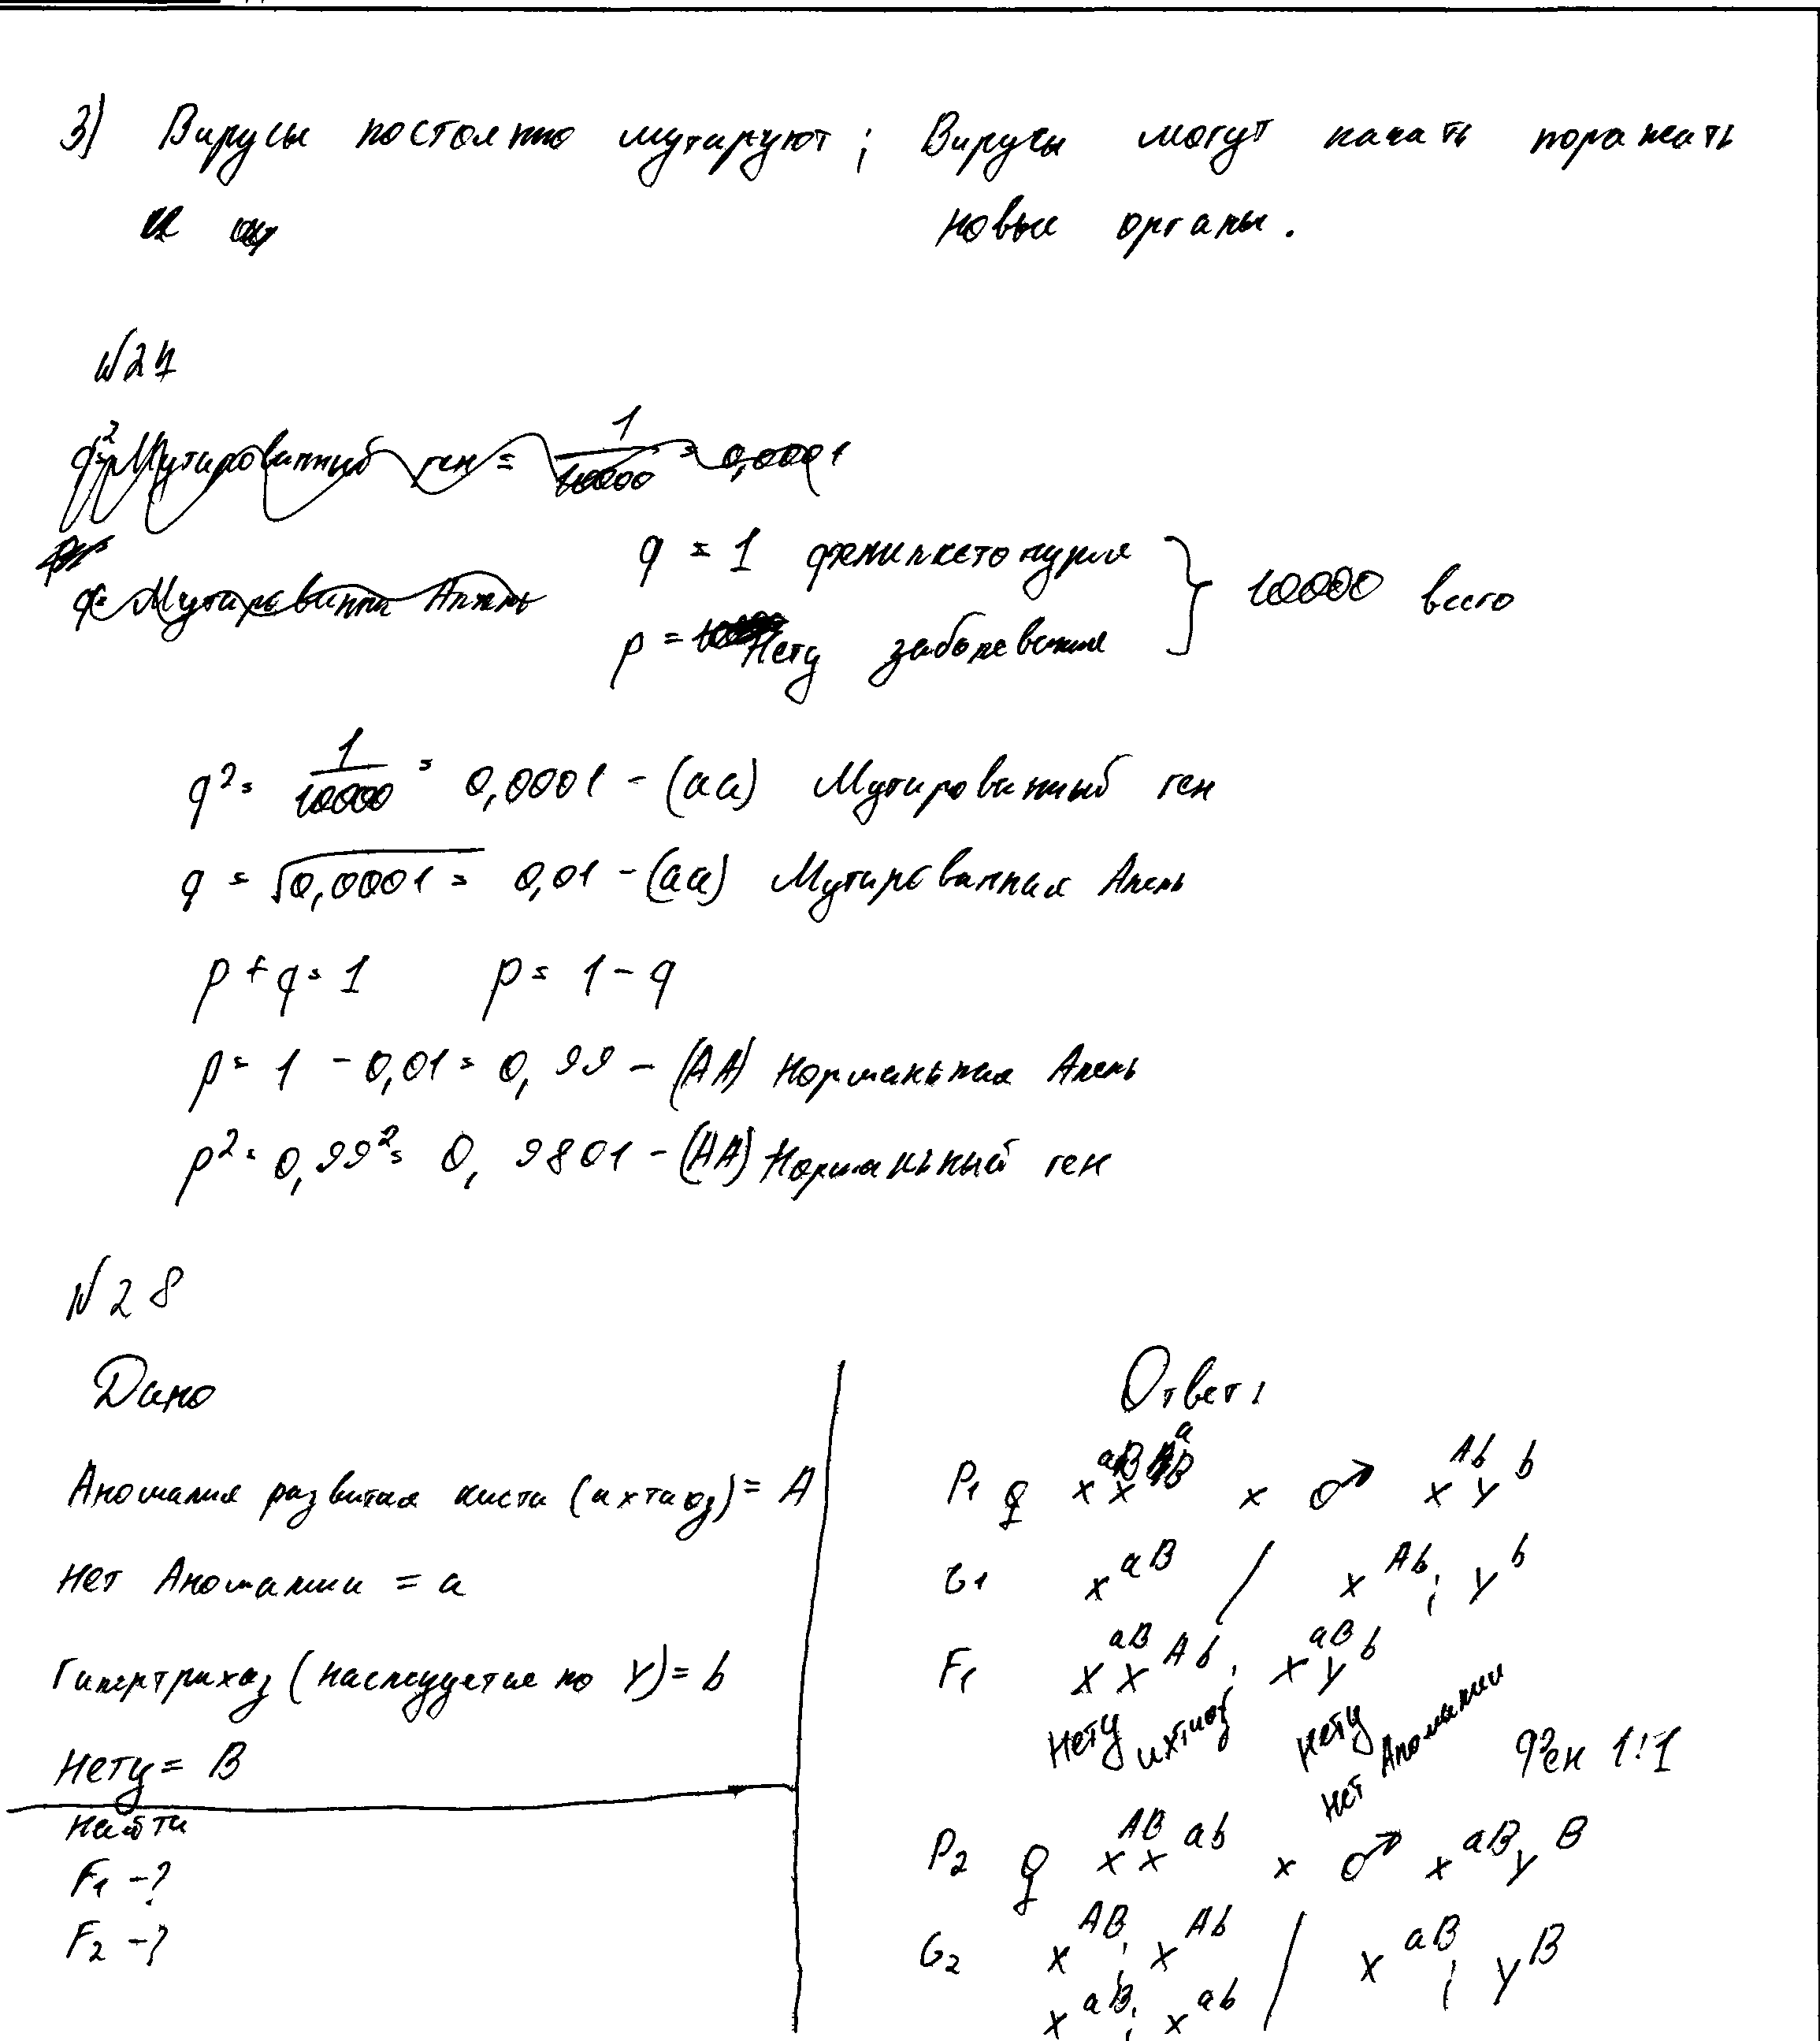 3) Вирусы постоянно мутируют; Вирусы могут начать поражать
новые органы.
№27
q² Мутированный ген = 1/10000 = 0,0001
q = 1 фенилкетонурия } 10000 всего
q = Мутированная Алель
p = Нету заболевание
q² = 1/10000 = 0,0001 - (aa) Мутированный ген
q = √0,0001 = 0,01 - (aa) Мутированная Алель
p + q = 1 p = 1 - q
p = 1 - 0,01 = 0,99 - (AA) Нормальная Алель
p² = 0,99² = 0,9801 - (AA) Нормальный ген
№28
Дано
Аномалия развития кисти (ихтиоз) = A
Нет Аномалии = a
Гипертрихоз (наследуется по Y) = b
Нету = B
Найти
F₁ -?
F₂ -?
Ответ:
P₁ ♀ X^aB X^aB x ♂ X^Ab Y^b
G₁ X^aB / X^Ab; Y^b
F₁ X^aB X^Ab; X^aB Y^b
Нету ихтиоз нету Аномалии
нет
Фен 1:1
P₂ ♀ X^AB X^ab x ♂ X^aB Y^B
G₂ X^AB; X^Ab / X^aB; Y^B
X^aB; X^ab